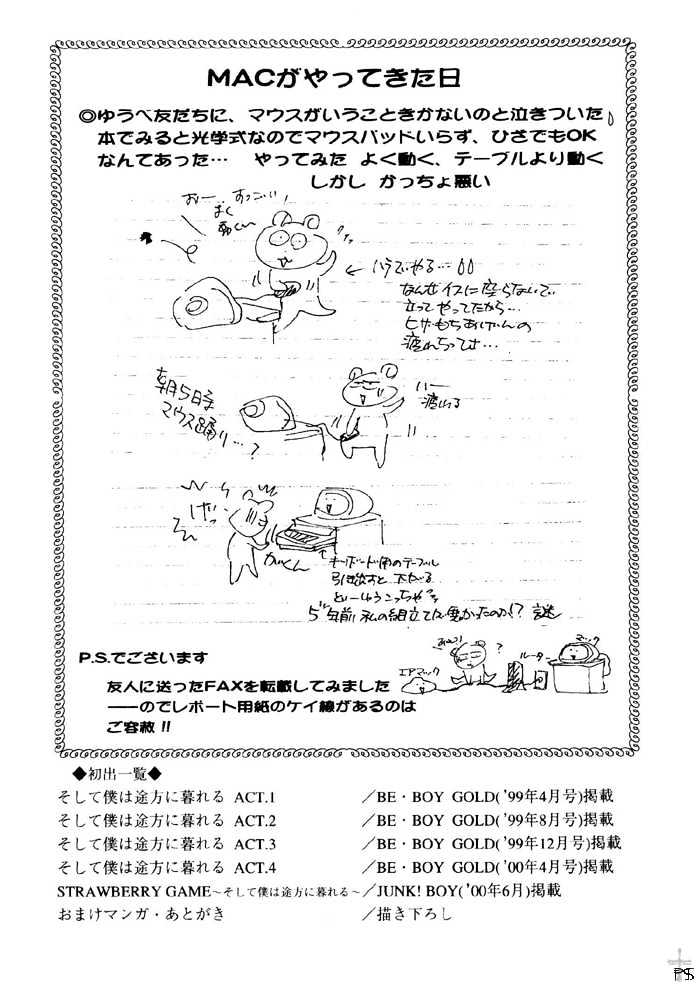 MACがやってきた日
◎ゆうべ友だちに、マウスがいうこときかないのと泣きついた
本でみると光学式なのでマウスパッドいらず、ひざでもOK
なんてあった… やってみた よく動く、テーブルより動く
しかし かっちょ悪い
おー…すっごい!
よく
動くー
← ハラでやる…
なんせイスに座らないで
立ってやってたから…
ヒザもちあげんの
疲れちってさ…
朝5時
マウス踊り…?
はー
疲れる
げっ
がくん
キーボード用のテーブル
引き出すと 下がる
5年前 私の組立てが悪かったのか!? 謎
P.S.でございます
友人に送ったFAXを転載してみました
――のでレポート用紙のケイ線があるのは
ご容赦!!
エアマック
?
ルーター
マック
◆初出一覧◆
そして僕は途方に暮れる ACT.1 /BE・BOY GOLD('99年4月号)掲載
そして僕は途方に暮れる ACT.2 /BE・BOY GOLD('99年8月号)掲載
そして僕は途方に暮れる ACT.3 /BE・BOY GOLD('99年12月号)掲載
そして僕は途方に暮れる ACT.4 /BE・BOY GOLD('00年4月号)掲載
STRAWBERRY GAME~そして僕は途方に暮れる~/JUNK! BOY('00年6月)掲載
おまけマンガ・あとがき /描き下ろし
PS